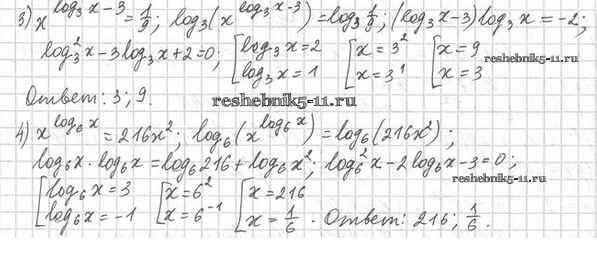 3) x^(log₃x-3) = 1/9; log₃(x^(log₃x-3)) = log₃ 1/9; (log₃x-3)log₃x = -2;
log₃²x-3log₃x+2=0; [log₃x=2 [x=3² [x=9
log₃x=1 x=3¹ x=3
reshebnik5-11.ru
Ответ: 3; 9.
reshebnik5-11.ru
4) x^(log₆x) = 216x²; log₆(x^(log₆x)) = log₆(216x²);
log₆x·log₆x=log₆216+log₆x²; log₆²x-2log₆x-3=0;
reshebnik5-11.ru
[log₆x=3 [x=6² [x=216
log₆x=-1 x=6⁻¹ x=1/6 . Ответ: 216; 1/6.